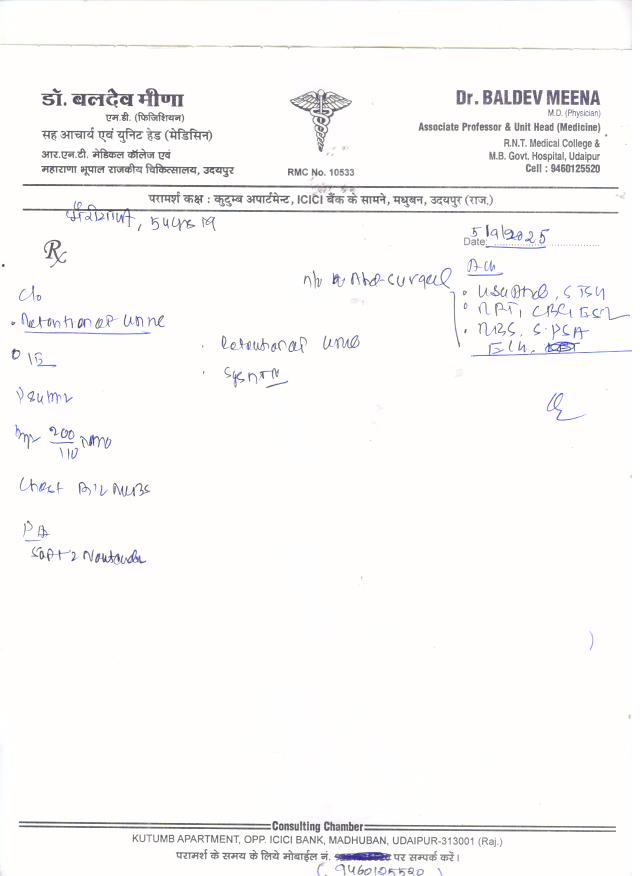 डॉ. बलदेव मीणा
एम.डी. (फिजिशियन)
सह आचार्य एवं यूनिट हेड (मेडिसिन)
आर.एन.टी. मेडिकल कॉलेज एवं
महाराणा भूपाल राजकीय चिकित्सालय, उदयपुर
RMC No. 10533
Dr. BALDEV MEENA
M.D. (Physician)
Associate Professor & Unit Head (Medicine)
R.N.T. Medical College &
M.B. Govt. Hospital, Udaipur
Cell : 9460125520
परामर्श कक्ष : कुटुम्ब अपार्टमेन्ट, ICICI बैंक के सामने, मधुबन, उदयपुर (राज.)
Date: 5/9/2025
Rx
Adv
h/o Abd-surgery
c/o
• Retention of urine
• Retention of urine
• Sys HTN
O/E
200/110 mm
Chest B/L NVBS
PA
Soft, Nontender
• RBS, S. PSA
Consulting Chamber
KUTUMB APARTMENT, OPP. ICICI BANK, MADHUBAN, UDAIPUR-313001 (Raj.)
परामर्श के समय के लिये मोबाईल नं. पर सम्पर्क करें।
(9460125520)